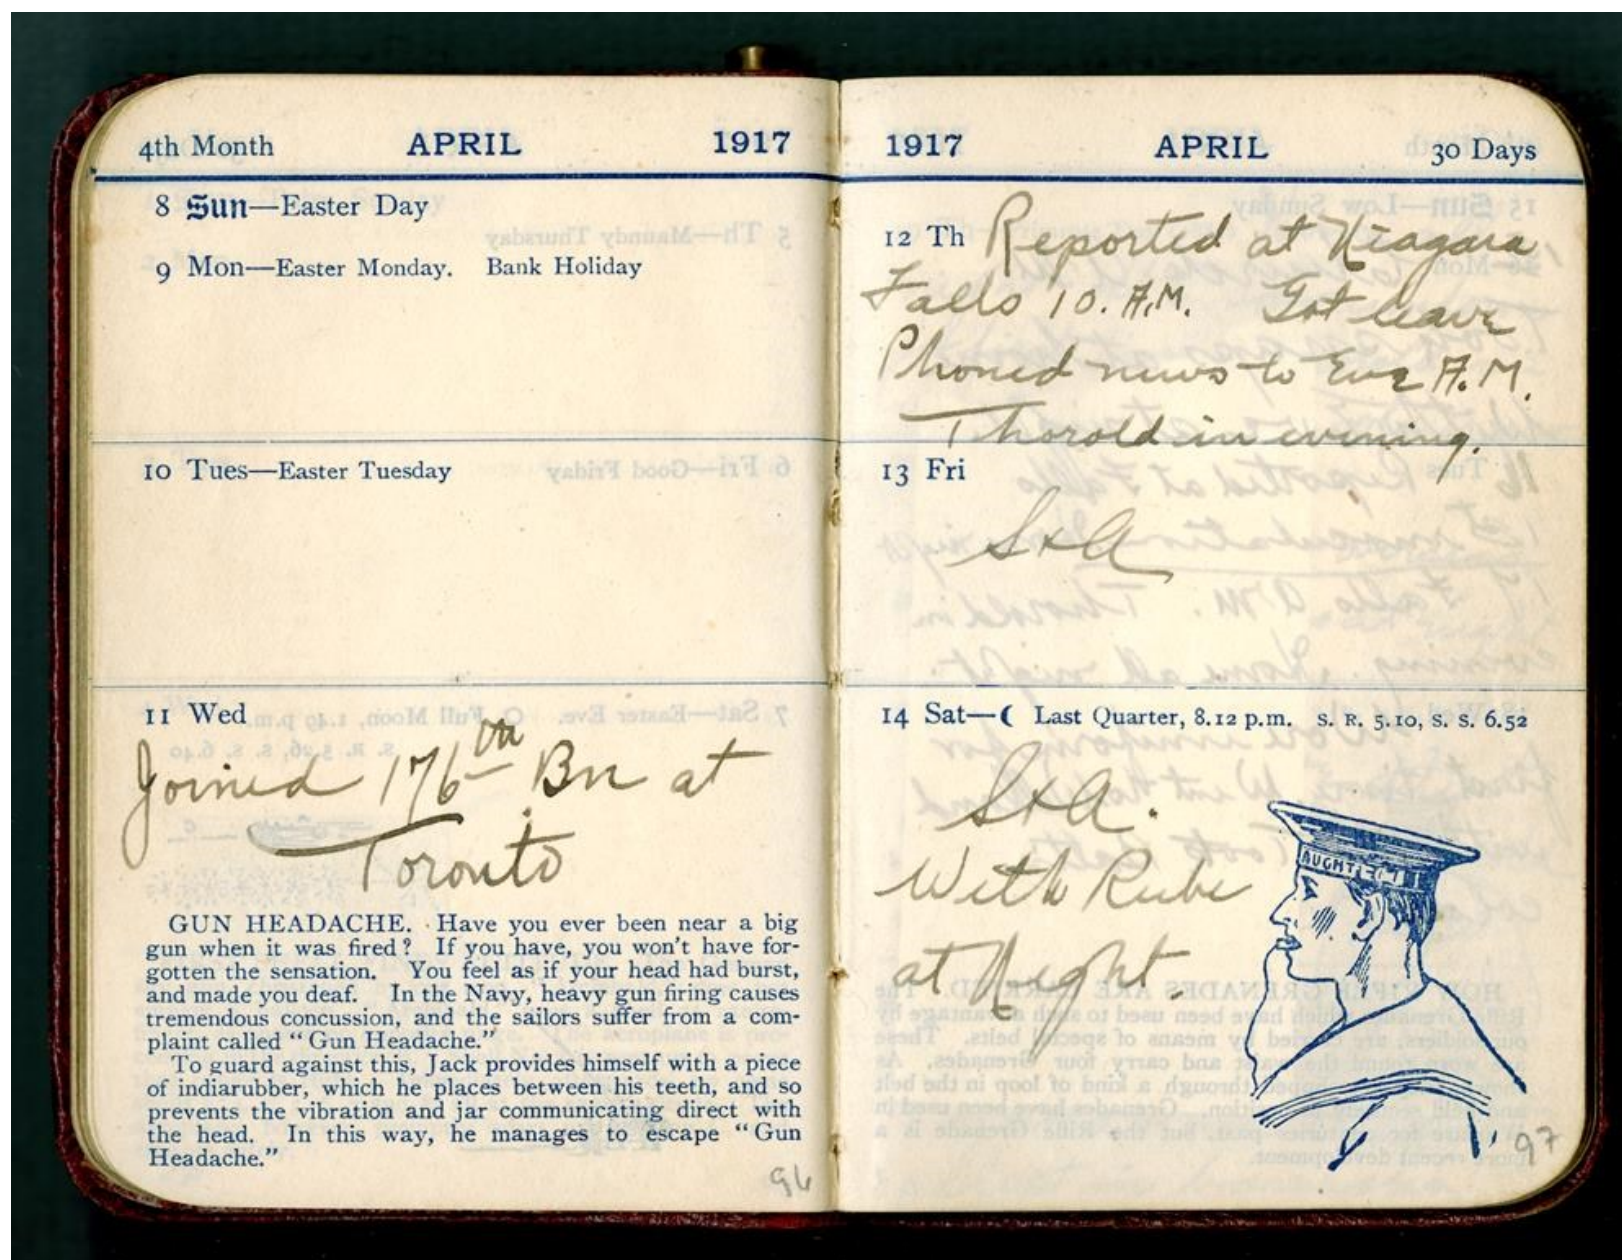 4th Month APRIL 1917
8 Sun—Easter Day
9 Mon—Easter Monday. Bank Holiday
10 Tues—Easter Tuesday
11 Wed
Joined 176th Bn at
Toronto
GUN HEADACHE. Have you ever been near a big
gun when it was fired? If you have, you won't have for-
gotten the sensation. You feel as if your head had burst,
and made you deaf. In the Navy, heavy gun firing causes
tremendous concussion, and the sailors suffer from a com-
plaint called "Gun Headache."
To guard against this, Jack provides himself with a piece
of indiarubber, which he places between his teeth, and so
prevents the vibration and jar communicating direct with
the head. In this way, he manages to escape "Gun
Headache."
96
1917 APRIL 30 Days
12 Th Reported at Niagara
Falls 10. A.M. Got leave
Phoned news to Eva A.M.
Thorold in evening.
13 Fri
StA
14 Sat—☾ Last Quarter, 8.12 p.m. S. R. 5.10, S. S. 6.52
StA.
With Rube
at Night.
97